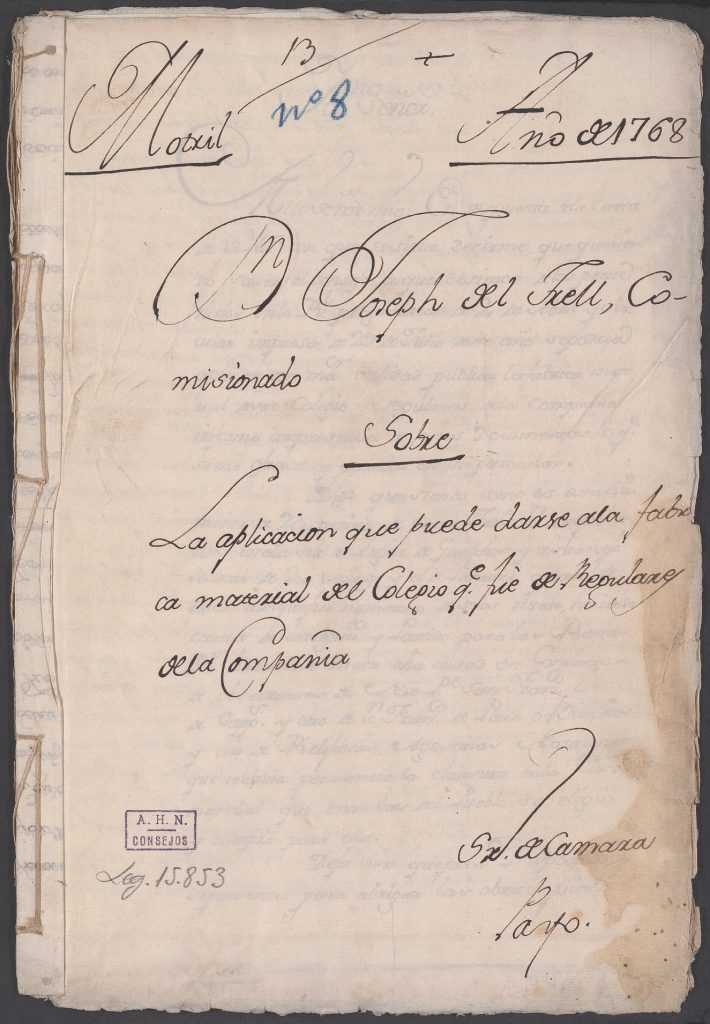 13 +
nº 8
Motril Año de 1768
Dn Joseph del Trell, Co-
misionado
Sobre
La aplicacion que puede darse ala fabri
ca material del Colegio q.e fuè de Regulares
dela Compañia
Sr. de Camara
Payo.
A. H. N.
CONSEJOS
Leg. 15.853